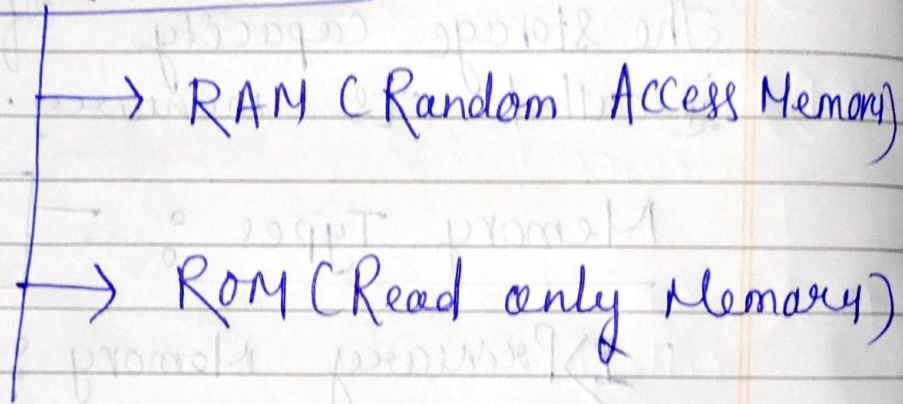 → RAM (Random Access Memory)
→ ROM (Read only Memory)